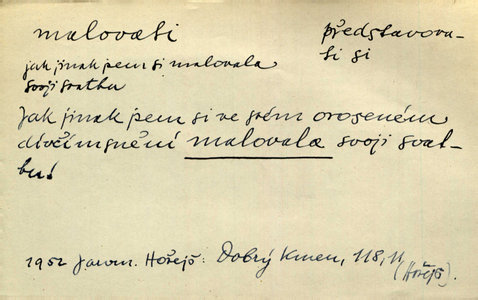 malovati
představova-
ti si
jak jinak jsem si malovala
svoji svatbu
Jak jinak jsem si ve svém oroseném
dívčím snění malovala svoji svat-
bu!
1952 Jarom. Hořejš: Dobrý kmen, 118, 11
(Hořejš).